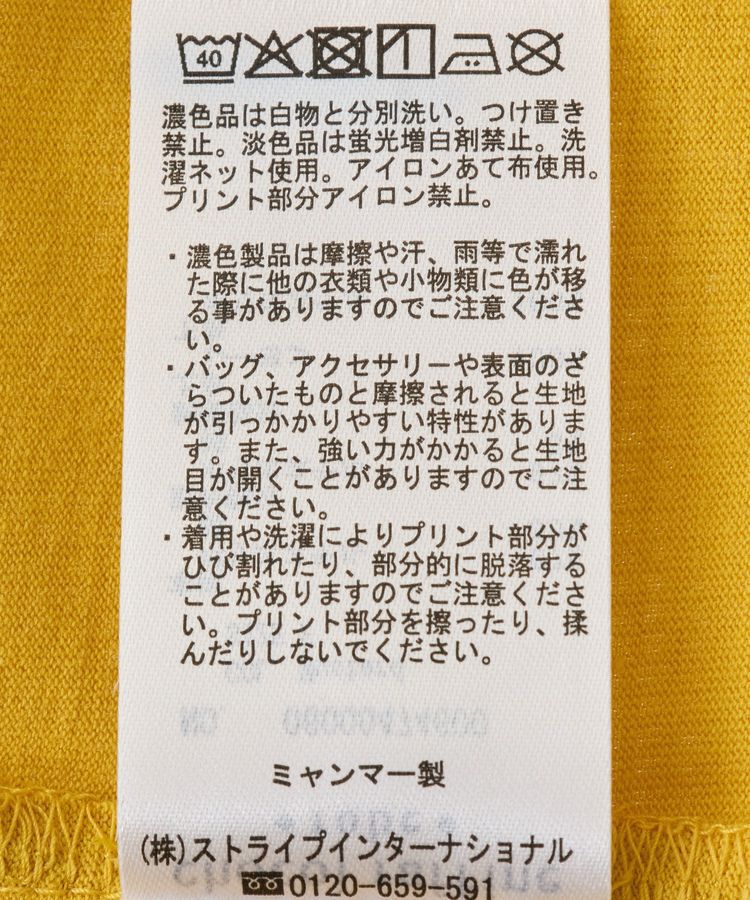 40
濃色品は白物と分別洗い。つけ置き
禁止。淡色品は蛍光増白剤禁止。洗
濯ネット使用。アイロンあて布使用。
プリント部分アイロン禁止。
・濃色製品は摩擦や汗、雨等で濡れ
た際に他の衣類や小物類に色が移
る事がありますのでご注意くださ
い。
・バッグ、アクセサリーや表面のざ
らついたものと摩擦されると生地
が引っかかりやすい特性がありま
す。また、強い力がかかると生地
目が開くことがありますのでご注
意ください。
・着用や洗濯によりプリント部分が
ひび割れたり、部分的に脱落する
ことがありますのでご注意くださ
い。プリント部分を擦ったり、揉
んだりしないでください。
NO. 08000474600
ミャンマー製
(株)ストライプインターナショナル
0120-659-591